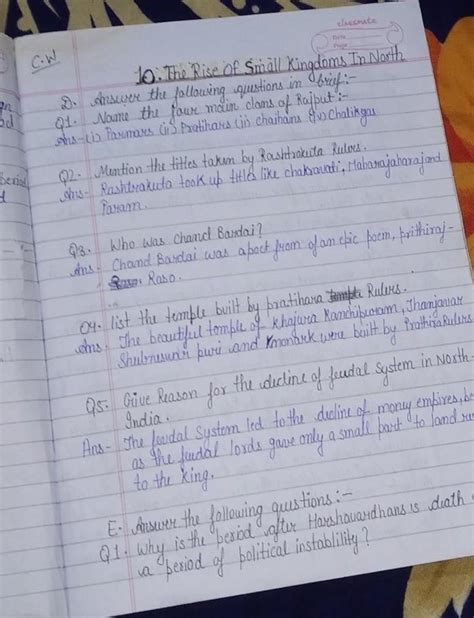 classmate
Date
Page
C.W
10. The Rise Of Small Kingdoms In North
D. Answer the following questions in brief:-
Q1. Name the four main clans of Rajput:-
Ans-(i) Parmars (ii) Pratihars (ii) chauhans (iv) Chalikyas
Q2. Mention the titles taken by Rashtrakuta Rulers.
Ans- Rashtrakuta took up titles like chakravati, Maharajaharaj and
Param.
Q3. Who was Chand Bardai?
Ans- Chand Bardai was a poet from of an epic poem, prithiraj-
Raso.
Q4. list the temple built by pratihara Rulers.
Ans. The beautiful temple of khajura Kanchipuram, Thanjavar
puri and were built by Rulers
Q5. Give Reason for the decline of feudal system in North-
India.
Ans- The feudal System led to the decline of money empires, be
as the feudal lords gave only a small part to land
to the King.
E. Answer the following questions:-
Q1. Why is the period after Harshavardhans is death
a period of political instablility?